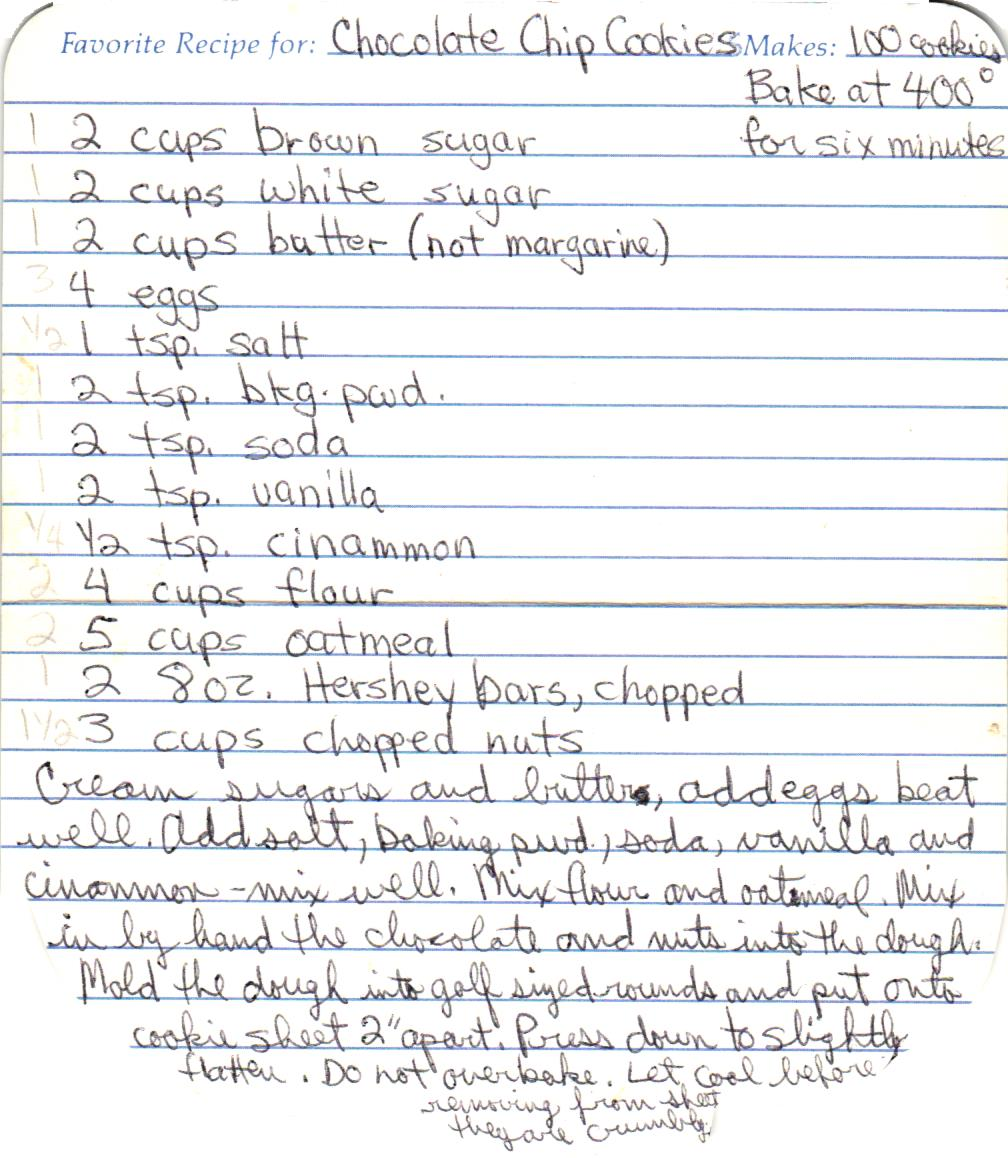 Favorite Recipe for: Chocolate Chip Cookies Makes: 100 cookies
Bake at 400°
1 2 cups brown sugar for six minutes
1 2 cups white sugar
1 2 cups butter (not margarine)
3 4 eggs
1/2 1 tsp. salt
1 2 tsp. bkg. pwd.
1 2 tsp. soda
1 2 tsp. vanilla
1/4 1/2 tsp. cinammon
2 4 cups flour
2 5 cups oatmeal
1 2 8 oz. Hershey bars, chopped
1 1/2 3 cups chopped nuts
Cream sugars and butter, add eggs beat
well. Add salt, baking pwd., soda, vanilla and
cinammon - mix well. Mix flour and oatmeal. Mix
in by hand the chocolate and nuts into the dough.
Mold the dough into golf sized rounds and put onto
cookie sheet 2" apart. Press down to slightly
flatten. Do not overbake. Let cool before
removing from sheet
they are crumbly.